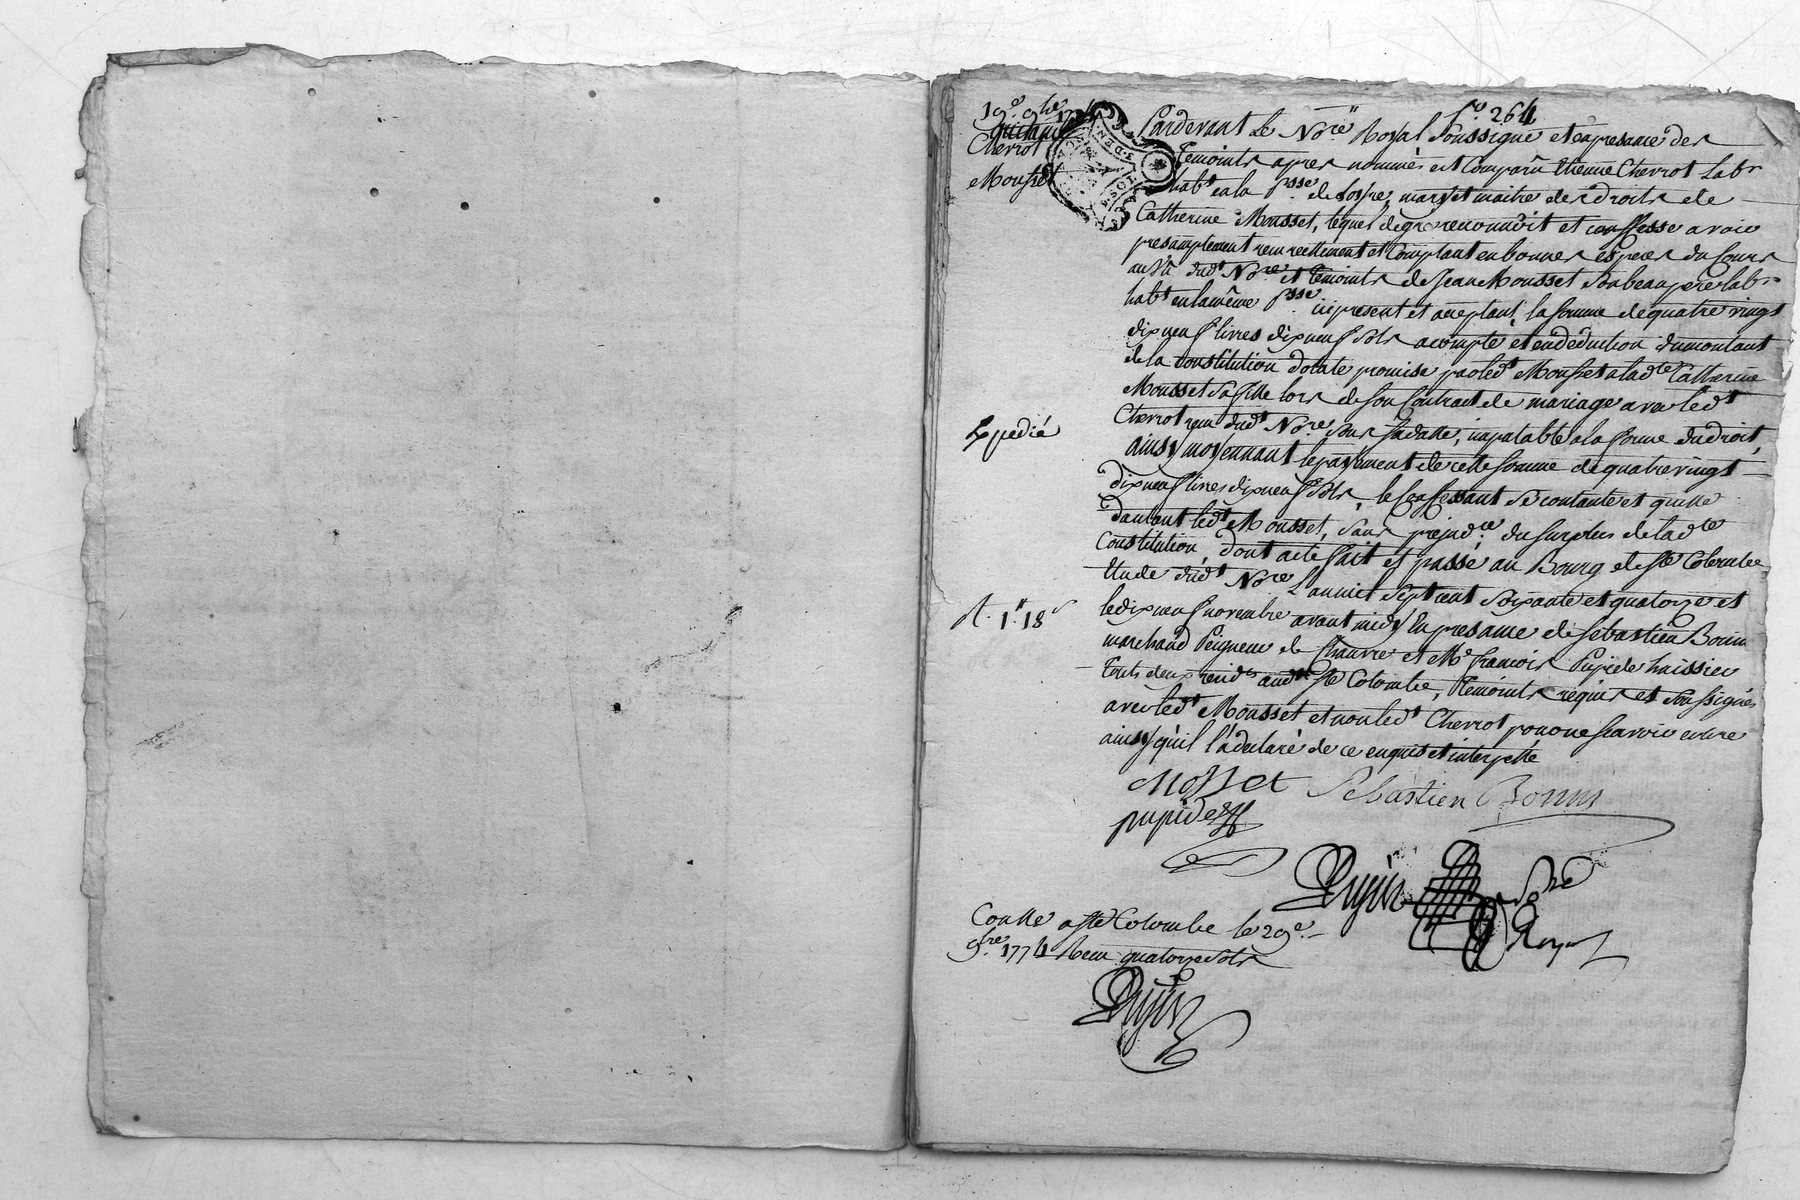 fo. 264
19e. 9bre 1774
quittance
Chevrot
Mousset
Pardevant Le Nore Royal soussigné et en presance des
Temoints apres nommés est Comparû Etienne Chevrot Labr
habt en la psse de Josse, mary et maitre des droits de
Catherine Mousset, lequel de gré reconnoit et confesse avoir
presamptement reçu reellement et Comptant en bonnes especes du Cours
au vû dudt Nore et Temoints de Jean Mousset son beaupere labr
habt en la même psse ici present et aceptant, la somme de quatre vingt
dix neuf livres dix neuf sols acompte et en déduction du montant
de la Constitution dotale promise par ledt Mousset a ladte Catherine
Mousset sa fille lors de son Contract de mariage avec ledt
Chevrot reçu dudt Nore sous sa datte, impatable a la forme du droit,
ainsy moyennant le payement de cette somme de quatre vingt
dix neuf livres dix neuf sols, le confessant se contante et quitte
dautant ledt Mousset, sans prejudce du surplus de ladte
Constitution, dont acte fait et passé au Bourg de Ste Colombe
Etude dudt Nore L'an mil sept cent soixante et quatorze et
le dix neuf novembre avant midy En presance de Sebastien Bonin
marchand Peigneur de Chanvre et Me francois Pupide huissier
touts deux resids audt Ste Colombe, Temoints requis et soussignés
avec ledt Mousset et non ledt Chevrot pour ne scavoir ecrire
ainsy qu'il l'a declaré de ce enquis et interpellé
Expedié
1. 18s
Mosset Sebastien Bonin
pupide
Nore
Royal
Conlle a Ste Colombe le 29e.
9bre. 1774 Recu quatorze sols